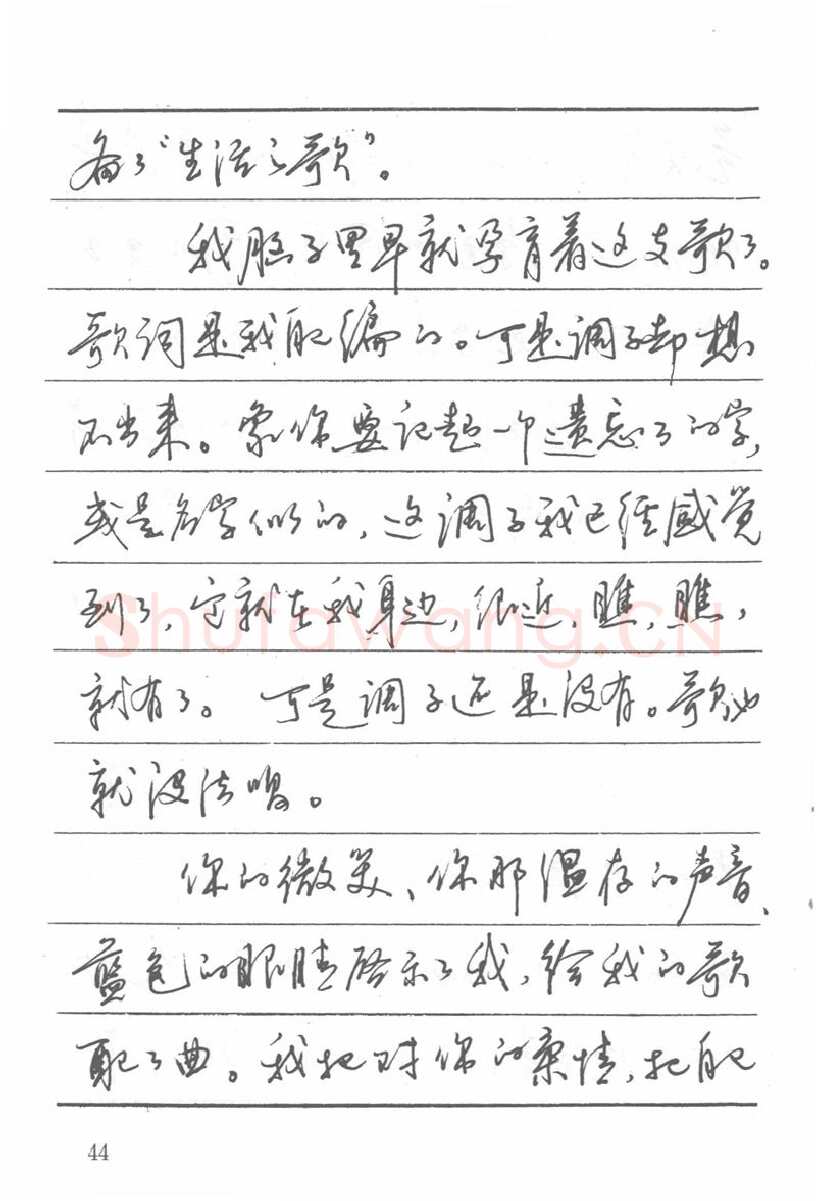 备了“生活之歌”。
我脑子里早就孕育着这支歌了。
歌词是我配编的。可是调子却想
不出来。象你要记起一个遗忘了的字,
或是名字似的,这调子我已经感觉
到了,它就在我身边,很近,瞧,瞧,
就有了。可是调子还是没有。歌也
就没法唱。
你的微笑、你那温存的声音、
蓝色的眼睛启示了我,给我的歌
配了曲。我把对你的柔情,把自己
44
Shufawang.CN